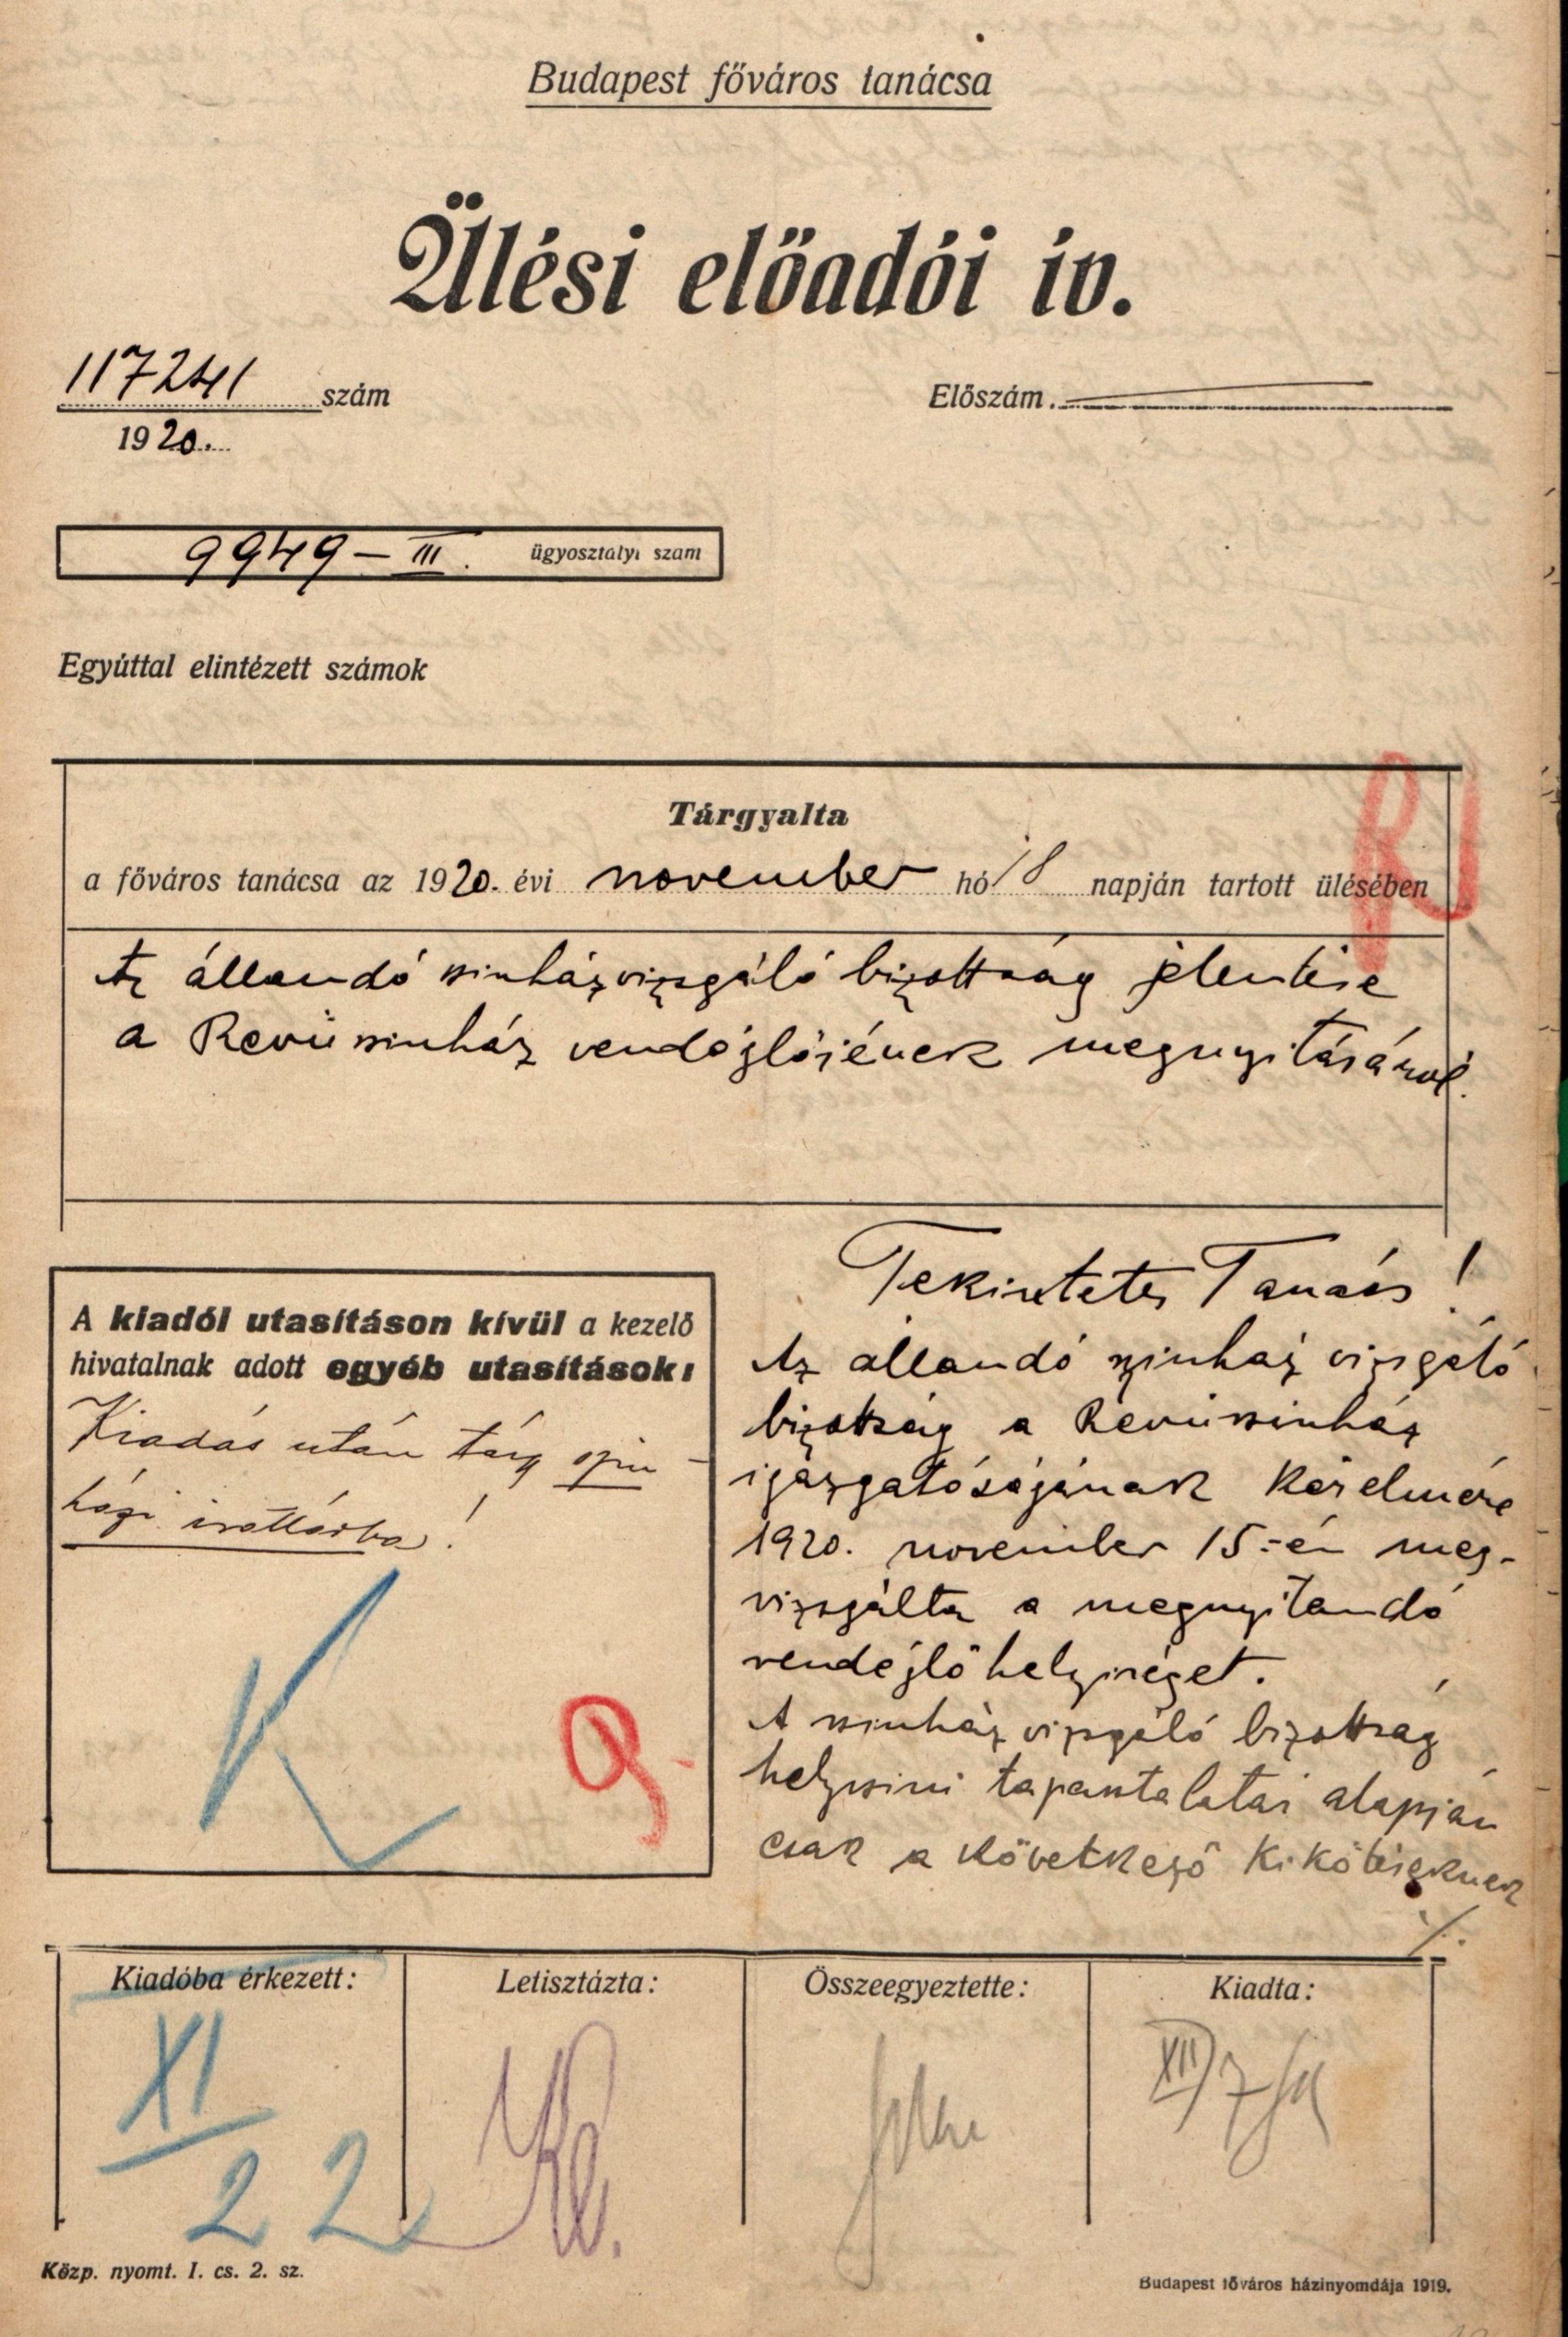 Budapest főváros tanácsa
Ülési előadói ív.
117241 szám
1920.
Előszám.
9949-III. ügyosztályi szám
Egyúttal elintézett számok
Tárgyalta
a főváros tanácsa az 1920. évi november hó 18 napján tartott ülésében
Az állandó szinházvizsgáló bizottság jelentése
a Revüszinház vendéglőjének megnyitásáról.
A kiadói utasításon kívül a kezelő
hivatalnak adott egyéb utasítások:
Kiadás után tárg szin-
házi irattárba!
K
Tekintetes Tanács!
Az állandó szinház vizsgáló
bizottság a Revüszinház
igazgatóságának kérelmére
1920. november 15-én meg-
vizsgálta a megnyitandó
vendéglő helyiséget.
A szinház vizsgáló bizottság
helyszini tapasztalatai alapján
csak a következő kikötéseknek
./.
Kiadóba érkezett:
Letisztázta:
Összeegyeztette:
Kiadta:
XI
22
XII/7
Közp. nyomt. I. cs. 2. sz.
Budapest főváros házinyomdája 1919.